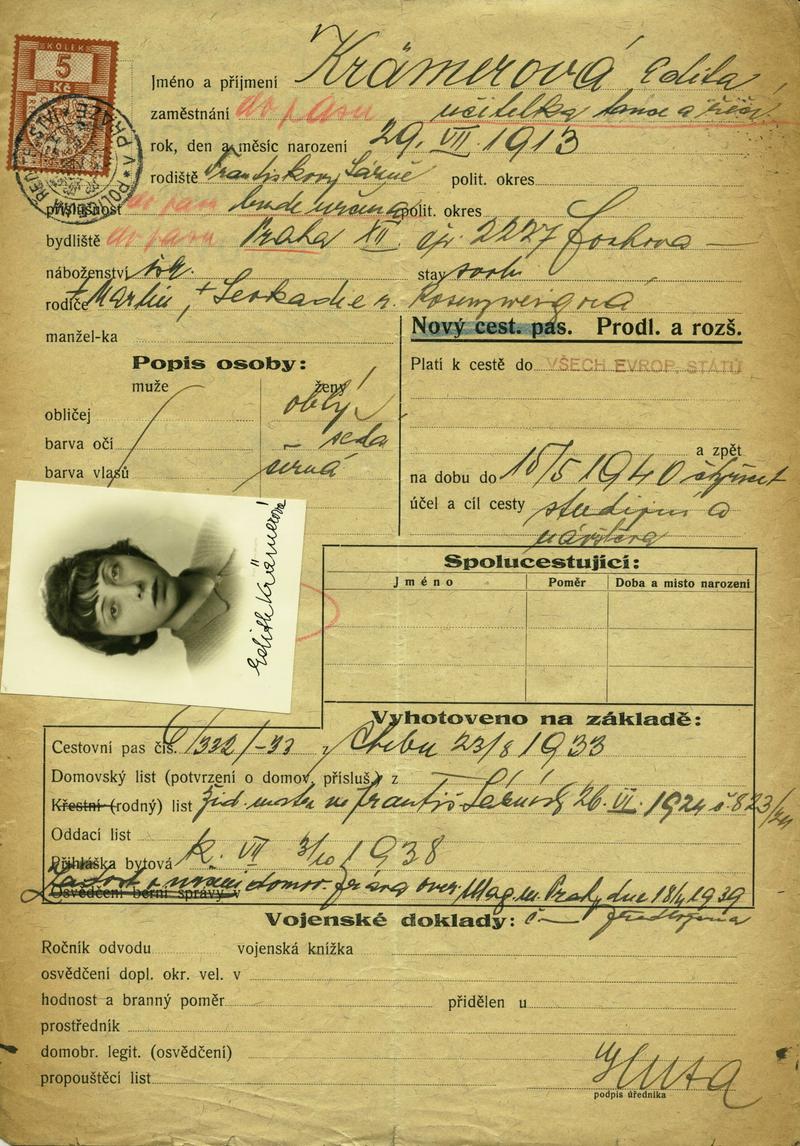 KOLEK
5
Kč
Jméno a příjmení Krämerová Edita
zaměstnání do pasu učitelka tance a řečí
rok, den a měsíc narození 29. VII. 1913
rodiště Františkovy Lázně polit. okres
příslušnost do pasu bude určena polit. okres
bydliště do pasu Praha XII. čp. 2227 Fochova —
náboženství izr. stav svob.
rodiče + Martin, + Leokadie r. Rosenzweigová
manžel-ka
Nový cest. pas. Prodl. a rozš.
Popis osoby:
Platí k cestě do VŠECH EVROP. STÁTŮ
muže ženy
obličej oblý
barva očí šedá
barva vlasů černá
a zpět
na dobu do 15/5 1940
účel a cíl cesty studijní a
návštěva
Edith Krämerová
Spolucestující:
Jméno Poměr Doba a misto narození
Vyhotoveno na základě:
Cestovní pas čís. 1332/-33 z Chebu 23/8 1933
Domovský list (potvrzení o domov. přísluš.) z
Křestní (rodný) list Žid. matr. ve Františ. Lázních 26. VI. 1924 č. 823/24
Oddací list
Přihláška bytová k. VII 3/10 1938
Osvědčení berní správy v domov. práva over. Mag. m. Prahy dne 18/4 1939
Vojenské doklady:
Ročník odvodu vojenská knížka
osvědčení dopl. okr. vel. v
hodnost a branný poměr přidělen u
prostředník
domobr. legit. (osvědčení)
propouštěcí list
podpis úředníka